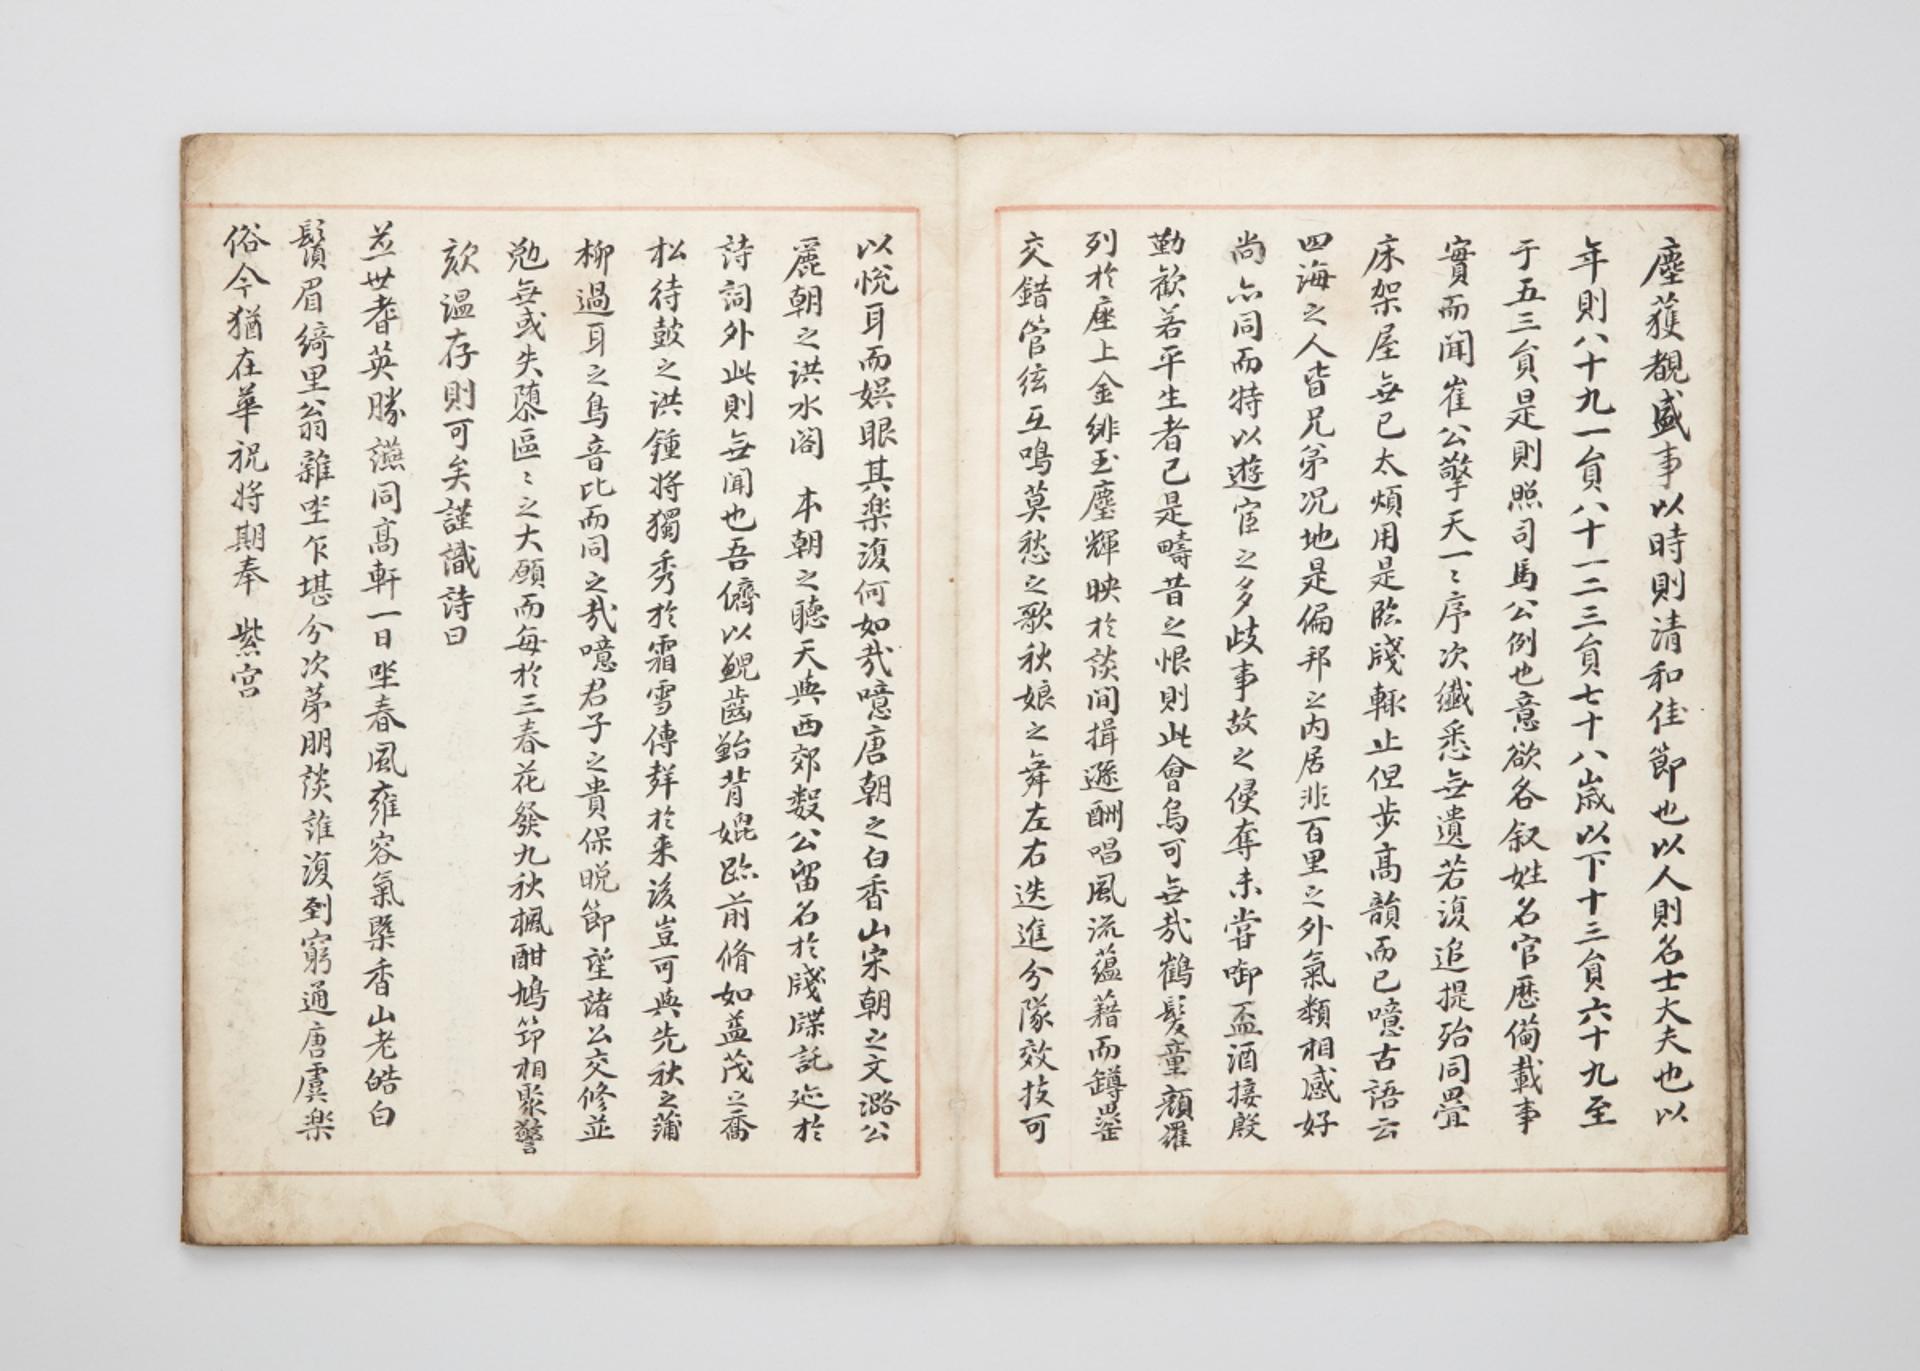 塵獲覩盛事以時則清和佳節也以人則名士大夫也以
年則八十九一員八十一二三員七十八歲以下十三員六十九至
于五三員是則照司馬公例也意欲各叙姓名官歷備載事
實而聞崔公擎天一〻序次纖悉無遺若復追提殆同疊
床架屋無已太煩用是臨牋輒止但步高韻而已噫古語云
四海之人皆兄弟況地是偏邦之內居非百里之外氣類相感好
尚亦同而特以遊宦之多歧事故之侵奪未嘗啣盃酒接殷
勤歡若平生者已是疇昔之恨則此會烏可無哉鶴髮童顏羅
列於座上金緋玉麈輝映於談間揖遜酬唱風流蘊藉而罇罍
交錯管絃互鳴莫愁之歌秋娘之舞左右迭進分隊效技可
以悅耳而娛眼其樂復何如哉噫唐朝之白香山宋朝之文潞公
麗朝之洪水閣 本朝之聽天與西郊數公留名於牋牒託迹於
詩詞外此則無聞也吾儕以鯢齒鮐背媲跡前脩如盖茂之喬
松待鼓之洪鍾將獨秀於霜雪傳辉於來後豈可與先秋之蒲
柳過耳之鳥音比而同之哉噫君子之貴保晚節望諸公交修並
勉無或失墜區〻之大願而每於三春花發九秋楓酣鳩笻相聚警
欬溫存則可矣謹識詩曰
並世耆英勝讌同高軒一日坐春風雍容氣槩香山老皓白
鬚眉綺里翁雜坐乍堪分次第朋談誰復到窮通唐虞樂
俗今猶在華祝將期奉 紫宮